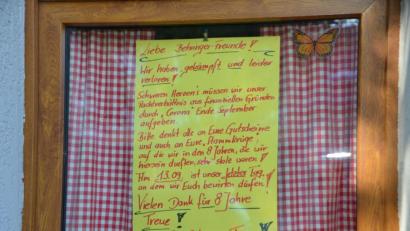 Liebe Behringer-Freunde!
Wir haben gekämpft und leider
verloren!
Schweren Herzen's müssen wir unser
Pachtverhältnis aus finanziellen Gründen
durch "Corona" Ende September
aufgeben.
Bitte denkt alle an Eure Gutscheine
und auch an Eure "Stammkrüge",
auf die wir in den 8 Jahren, die wir
hiersein durften, sehr stolz waren!
Am 13.09 ist unser letzter Tag,
an dem wir Euch bewirten dürfen!
Vielen Dank für 8 Jahre
Treue!